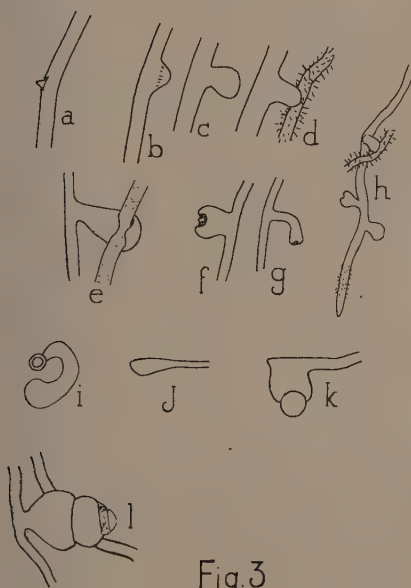 a
b
c
d
h
e
f
g
i
J
k
l
Fig.3